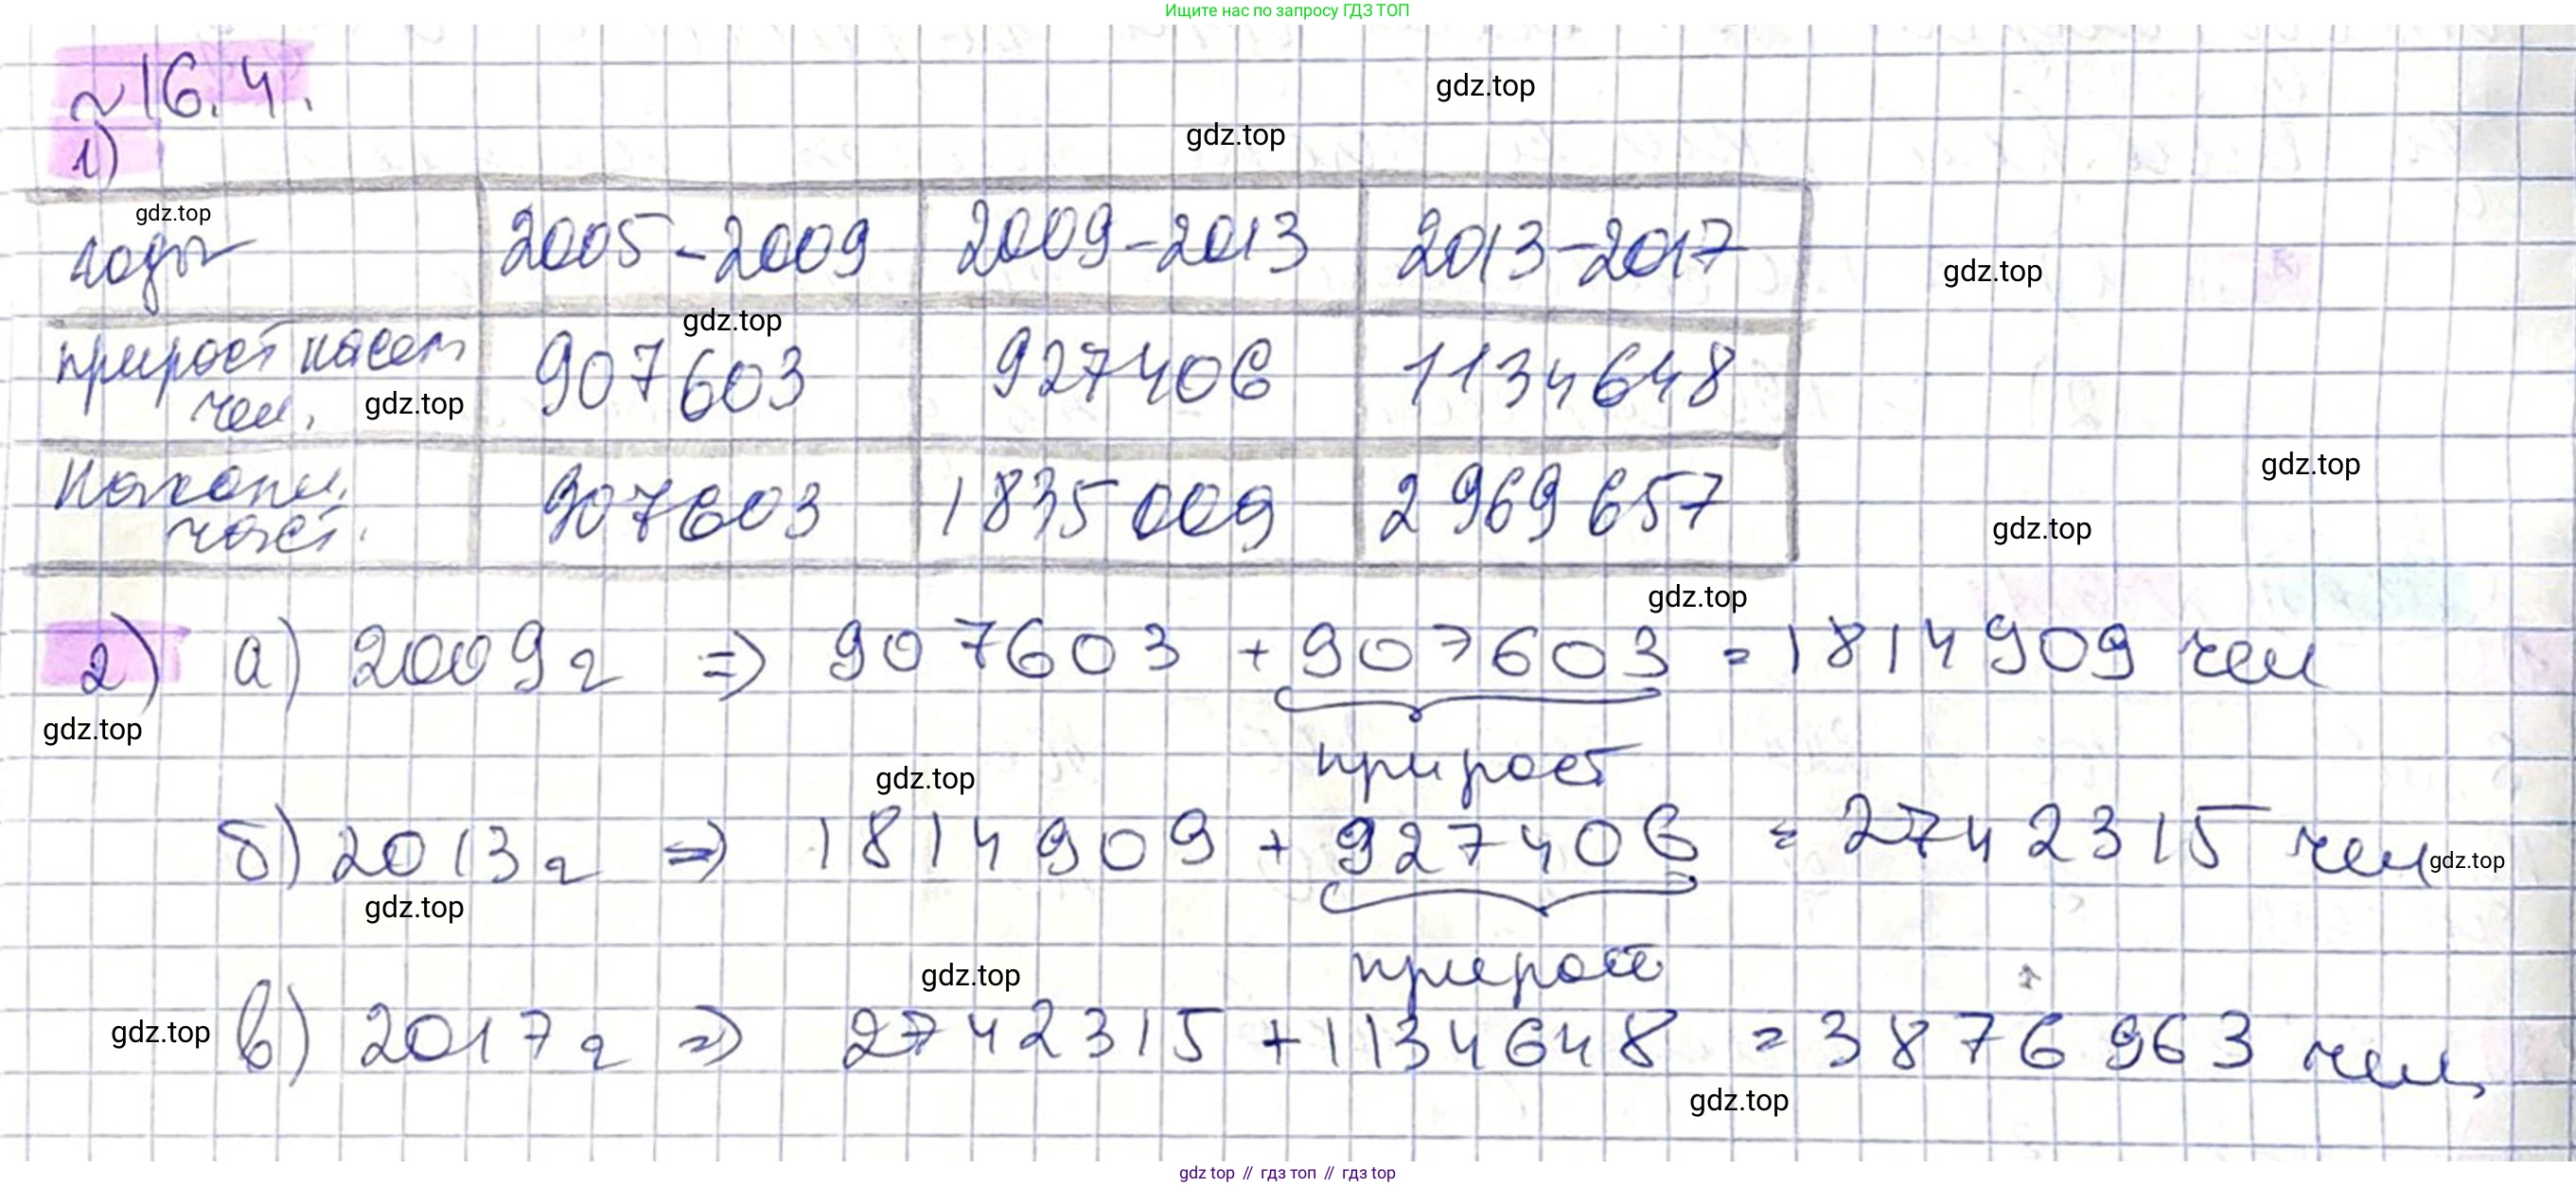 Ищите нас по запросу ГДЗ ТОП
~16.4.
gdz.top
gdz.top
1)
gdz.top
годы 2005-2009 2009-2013 2013-2017
gdz.top
gdz.top
прирост насел 907603 927406 1134648
чел. gdz.top
gdz.top
Накопл. 907603 1835009 2969657
част.
gdz.top
gdz.top
2) а) 2009г => 907603 + 907603 = 1814909 чел
gdz.top
прирост
gdz.top
б) 2013г => 1814909 + 927406 = 2742315 чел
gdz.top
gdz.top
прирост
gdz.top
gdz.top
в) 2017г => 2742315 + 1134648 = 3876963 чел,
gdz.top
gdz top // гдз топ // гдз top